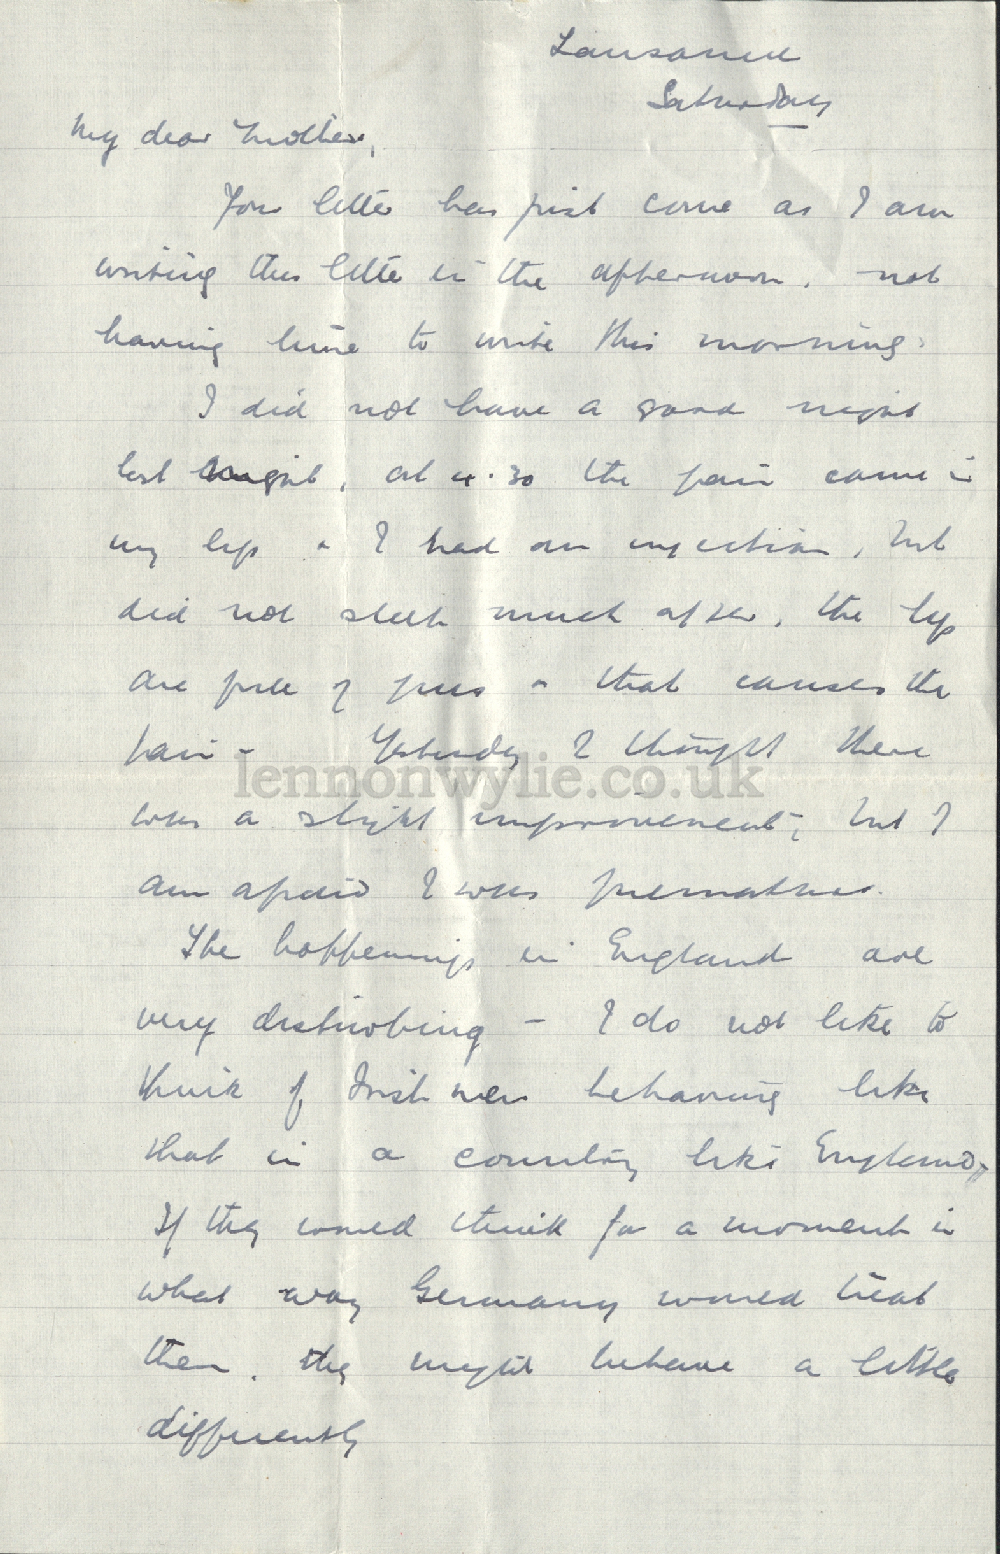 Lausanne
Saturday
My dear Mother,
Your letter has just come as I am
writing this letter in the afternoon, not
having time to write this morning.
I did not have a good night
last night, at 4.30 the pain came in
my legs & I had an injection, but
did not sleep much after, the legs
are full of pus & that causes the
pain - Yesterday I thought there
lennonwylie.co.uk
was a slight improvement, but I
am afraid I was premature.
The happenings in England are
very disturbing - I do not like to
think of Irishmen behaving like
that in a country like England,
If they would think for a moment in
what way Germany would treat
them, they might behave a little
differently